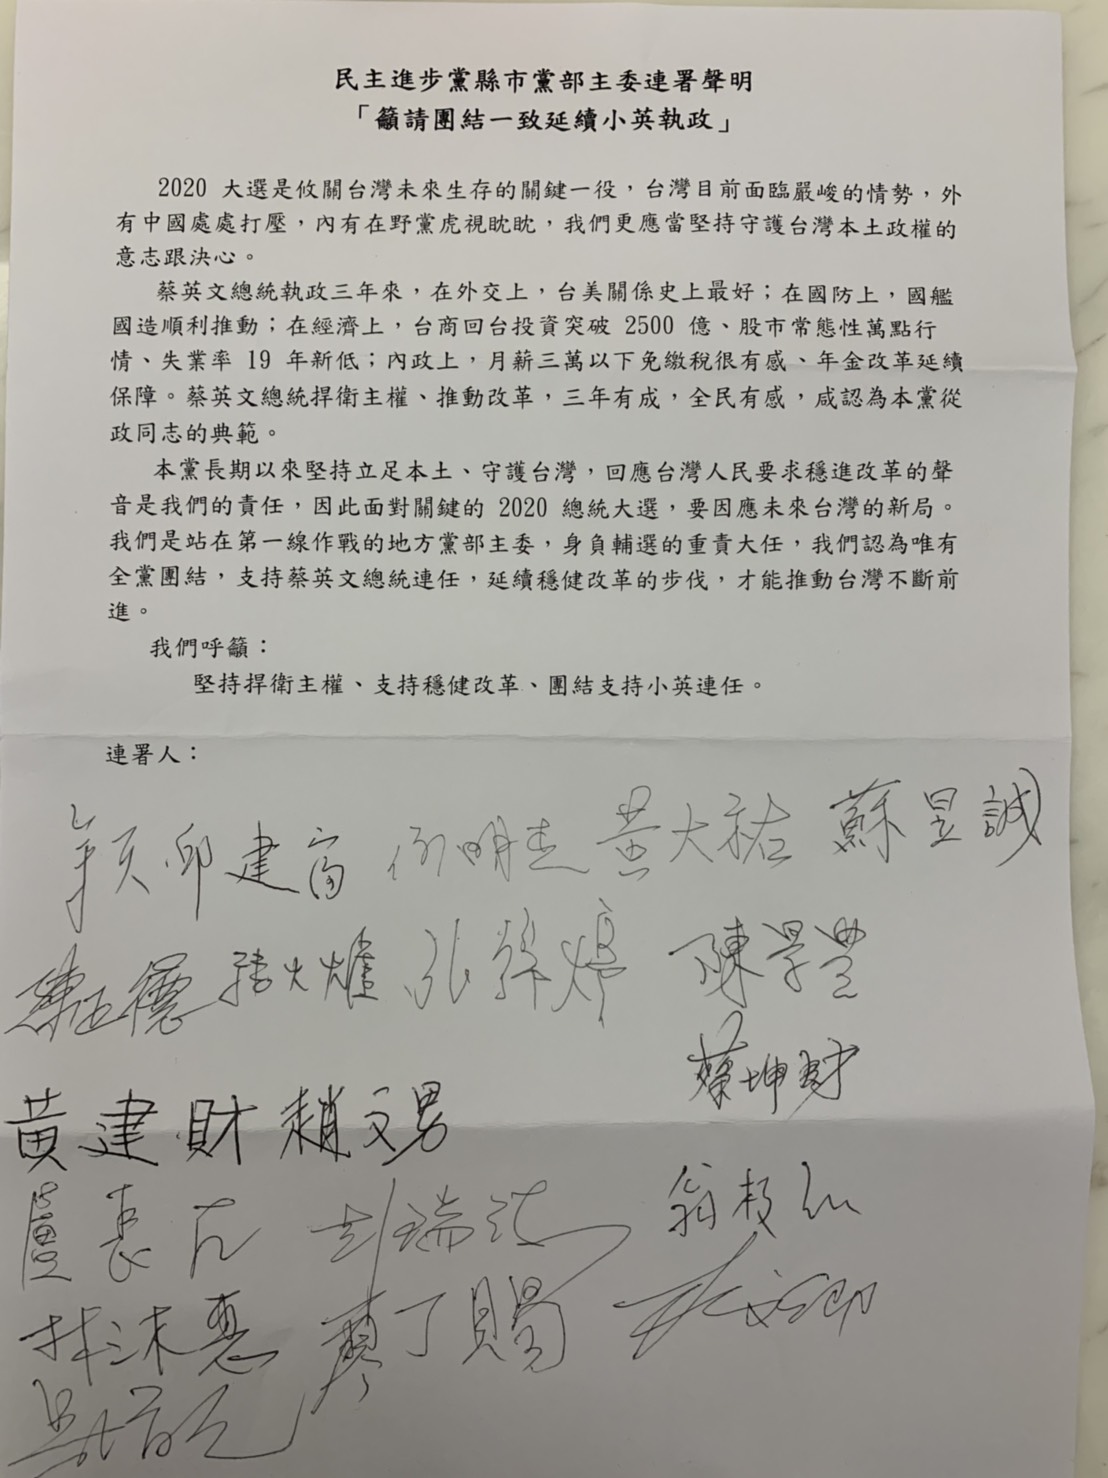 民主進步黨縣市黨部主委連署聲明
「籲請團結一致延續小英執政」
2020 大選是攸關台灣未來生存的關鍵一役，台灣目前面臨嚴峻的情勢，外
有中國處處打壓，內有在野黨虎視眈眈，我們更應當堅持守護台灣本土政權的
意志跟決心。
蔡英文總統執政三年來，在外交上，台美關係史上最好；在國防上，國艦
國造順利推動；在經濟上，台商回台投資突破 2500 億、股市常態性萬點行
情、失業率 19 年新低；內政上，月薪三萬以下免繳稅很有感、年金改革延續
保障。蔡英文總統捍衛主權、推動改革，三年有成，全民有感，咸認為本黨從
政同志的典範。
本黨長期以來堅持立足本土、守護台灣，回應台灣人民要求穩進改革的聲
音是我們的責任，因此面對關鍵的 2020 總統大選，要因應未來台灣的新局。
我們是站在第一線作戰的地方黨部主委，身負輔選的重責大任，我們認為唯有
全黨團結，支持蔡英文總統連任，延續穩健改革的步伐，才能推動台灣不斷前
進。
我們呼籲：
堅持捍衛主權、支持穩健改革、團結支持小英連任。
連署人：
邱建富 何明杰 黃大祐 蘇昱誠
陳正德 陳學豐
蔡坤財
黃建財 趙文男
翁枝
林沐惠